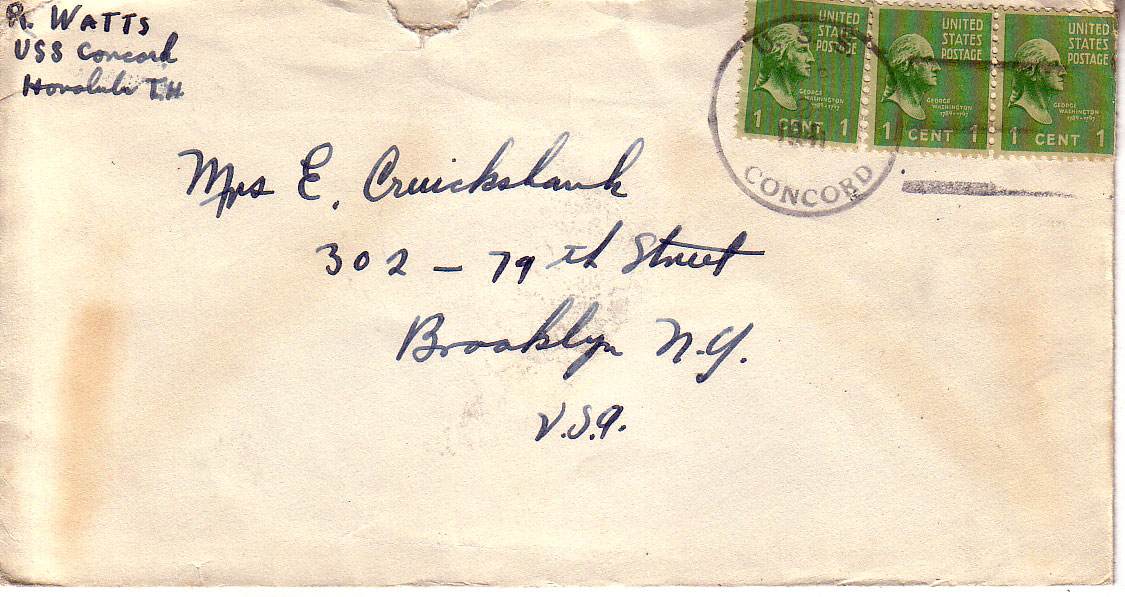 R. WATTS
USS Concord
Honolulu T.H
UNITED STATES POSTAGE
GEORGE WASHINGTON
1789-1797
1 CENT 1
UNITED STATES POSTAGE
GEORGE WASHINGTON
1789-1797
1 CENT 1
UNITED STATES POSTAGE
GEORGE WASHINGTON
1789-1797
1 CENT 1
U.S.S.
CONCORD
Mrs E. Cruickshank
302 - 79th Street
Brooklyn N.Y.
U.S.A.